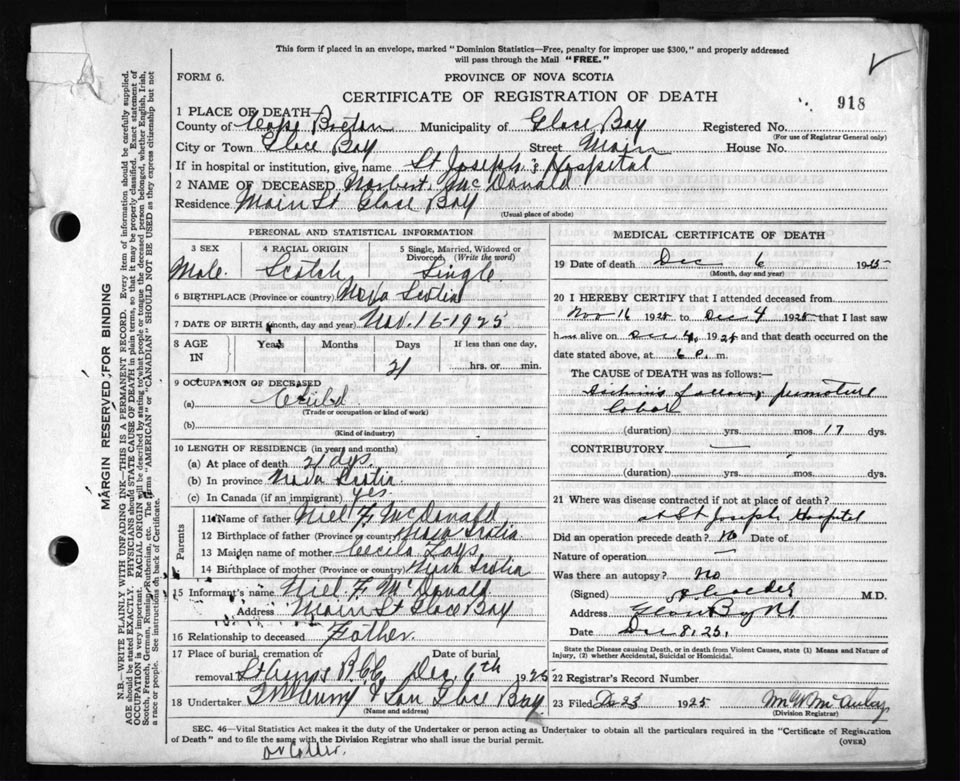 This form if placed in an envelope, marked "Dominion Statistics—Free, penalty for improper use $300," and properly addressed
will pass through the Mail "FREE."
FORM 6.
PROVINCE OF NOVA SCOTIA
CERTIFICATE OF REGISTRATION OF DEATH
918
1 PLACE OF DEATH
County of Cape Breton Municipality of Glace Bay Registered No.
(For use of Registrar General only)
City or Town Glace Bay Street Main House No.
If in hospital or institution, give name St Joseph's Hospital
2 NAME OF DECEASED Norbert McDonald
Residence Main St Glace Bay
(Usual place of abode)
PERSONAL AND STATISTICAL INFORMATION
3 SEX 4 RACIAL ORIGIN 5 Single, Married, Widowed or Divorced (Write the word)
Male. Scotch Single
6 BIRTHPLACE (Province or country) Nova Scotia
7 DATE OF BIRTH (month, day and year) Nov. 16-1925
8 AGE IN Years Months Days If less than one day,
21 hrs. or min.
9 OCCUPATION OF DECEASED
(a) Child
(Trade or occupation or kind of work)
(b)
(Kind of industry)
10 LENGTH OF RESIDENCE (in years and months)
(a) At place of death 21 dys.
(b) In province Nova Scotia
(c) In Canada (if an immigrant) yes.
Parents
11 Name of father Niel F McDonald
12 Birthplace of father (Province or country) Nova Scotia.
13 Maiden name of mother Cecila
14 Birthplace of mother (Province or country) Nova Scotia
15 Informant's name Niel F McDonald
Address Main St Glace Bay
16 Relationship to deceased Father.
17 Place of burial, cremation or removal Date of burial
Dec, 6th 1925
18 Undertaker & Son Glace Bay
(Name and address)
MEDICAL CERTIFICATE OF DEATH
19 Date of death Dec 6 1925
(Month, day and year)
20 I HEREBY CERTIFY that I attended deceased from
Nov 16 1925 to Dec 4 1925 that I last saw
h alive on Dec 4, 1925 and that death occurred on the
date stated above, at 6 P. m.
The CAUSE of DEATH was as follows:—
premature
labor
(duration) yrs. mos. 17 dys.
CONTRIBUTORY —
(duration) yrs. mos. dys.
21 Where was disease contracted if not at place of death?
At St Joseph Hospital
Did an operation precede death? No Date of
Nature of operation —
Was there an autopsy? No
(Signed) M.D.
Address Glace Bay NS
Date Dec 8.25.
State the Disease causing Death, or in death from Violent Causes, state (1) Means and Nature of
Injury, (2) whether Accidental, Suicidal or Homicidal.
22 Registrar's Record Number
23 Filed Dec 23 1925 McAulay
(Division Registrar)
SEC. 46—Vital Statistics Act makes it the duty of the Undertaker or person acting as Undertaker to obtain all the particulars required in the "Certificate of Registration
of Death" and to file the same with the Division Registrar who shall issue the burial permit.
(OVER)
MARGIN RESERVED FOR BINDING
N.B.—WRITE PLAINLY WITH UNFADING INK—THIS IS A PERMANENT RECORD. Every item of information should be carefully supplied.
AGE should be stated EXACTLY. PHYSICIANS should STATE CAUSE OF DEATH in plain terms, so that it may be properly classified. Exact statement of
OCCUPATION is very important. RACIAL ORIGIN will be described by stating to what people or tongue the deceased person belonged, whether English, Irish,
Scotch, French, German, Russian, Ruthenian, etc. The terms "AMERICAN" or "CANADIAN" SHOULD NOT BE USED as they express citizenship but not
a race or people. See instructions on back of Certificate.